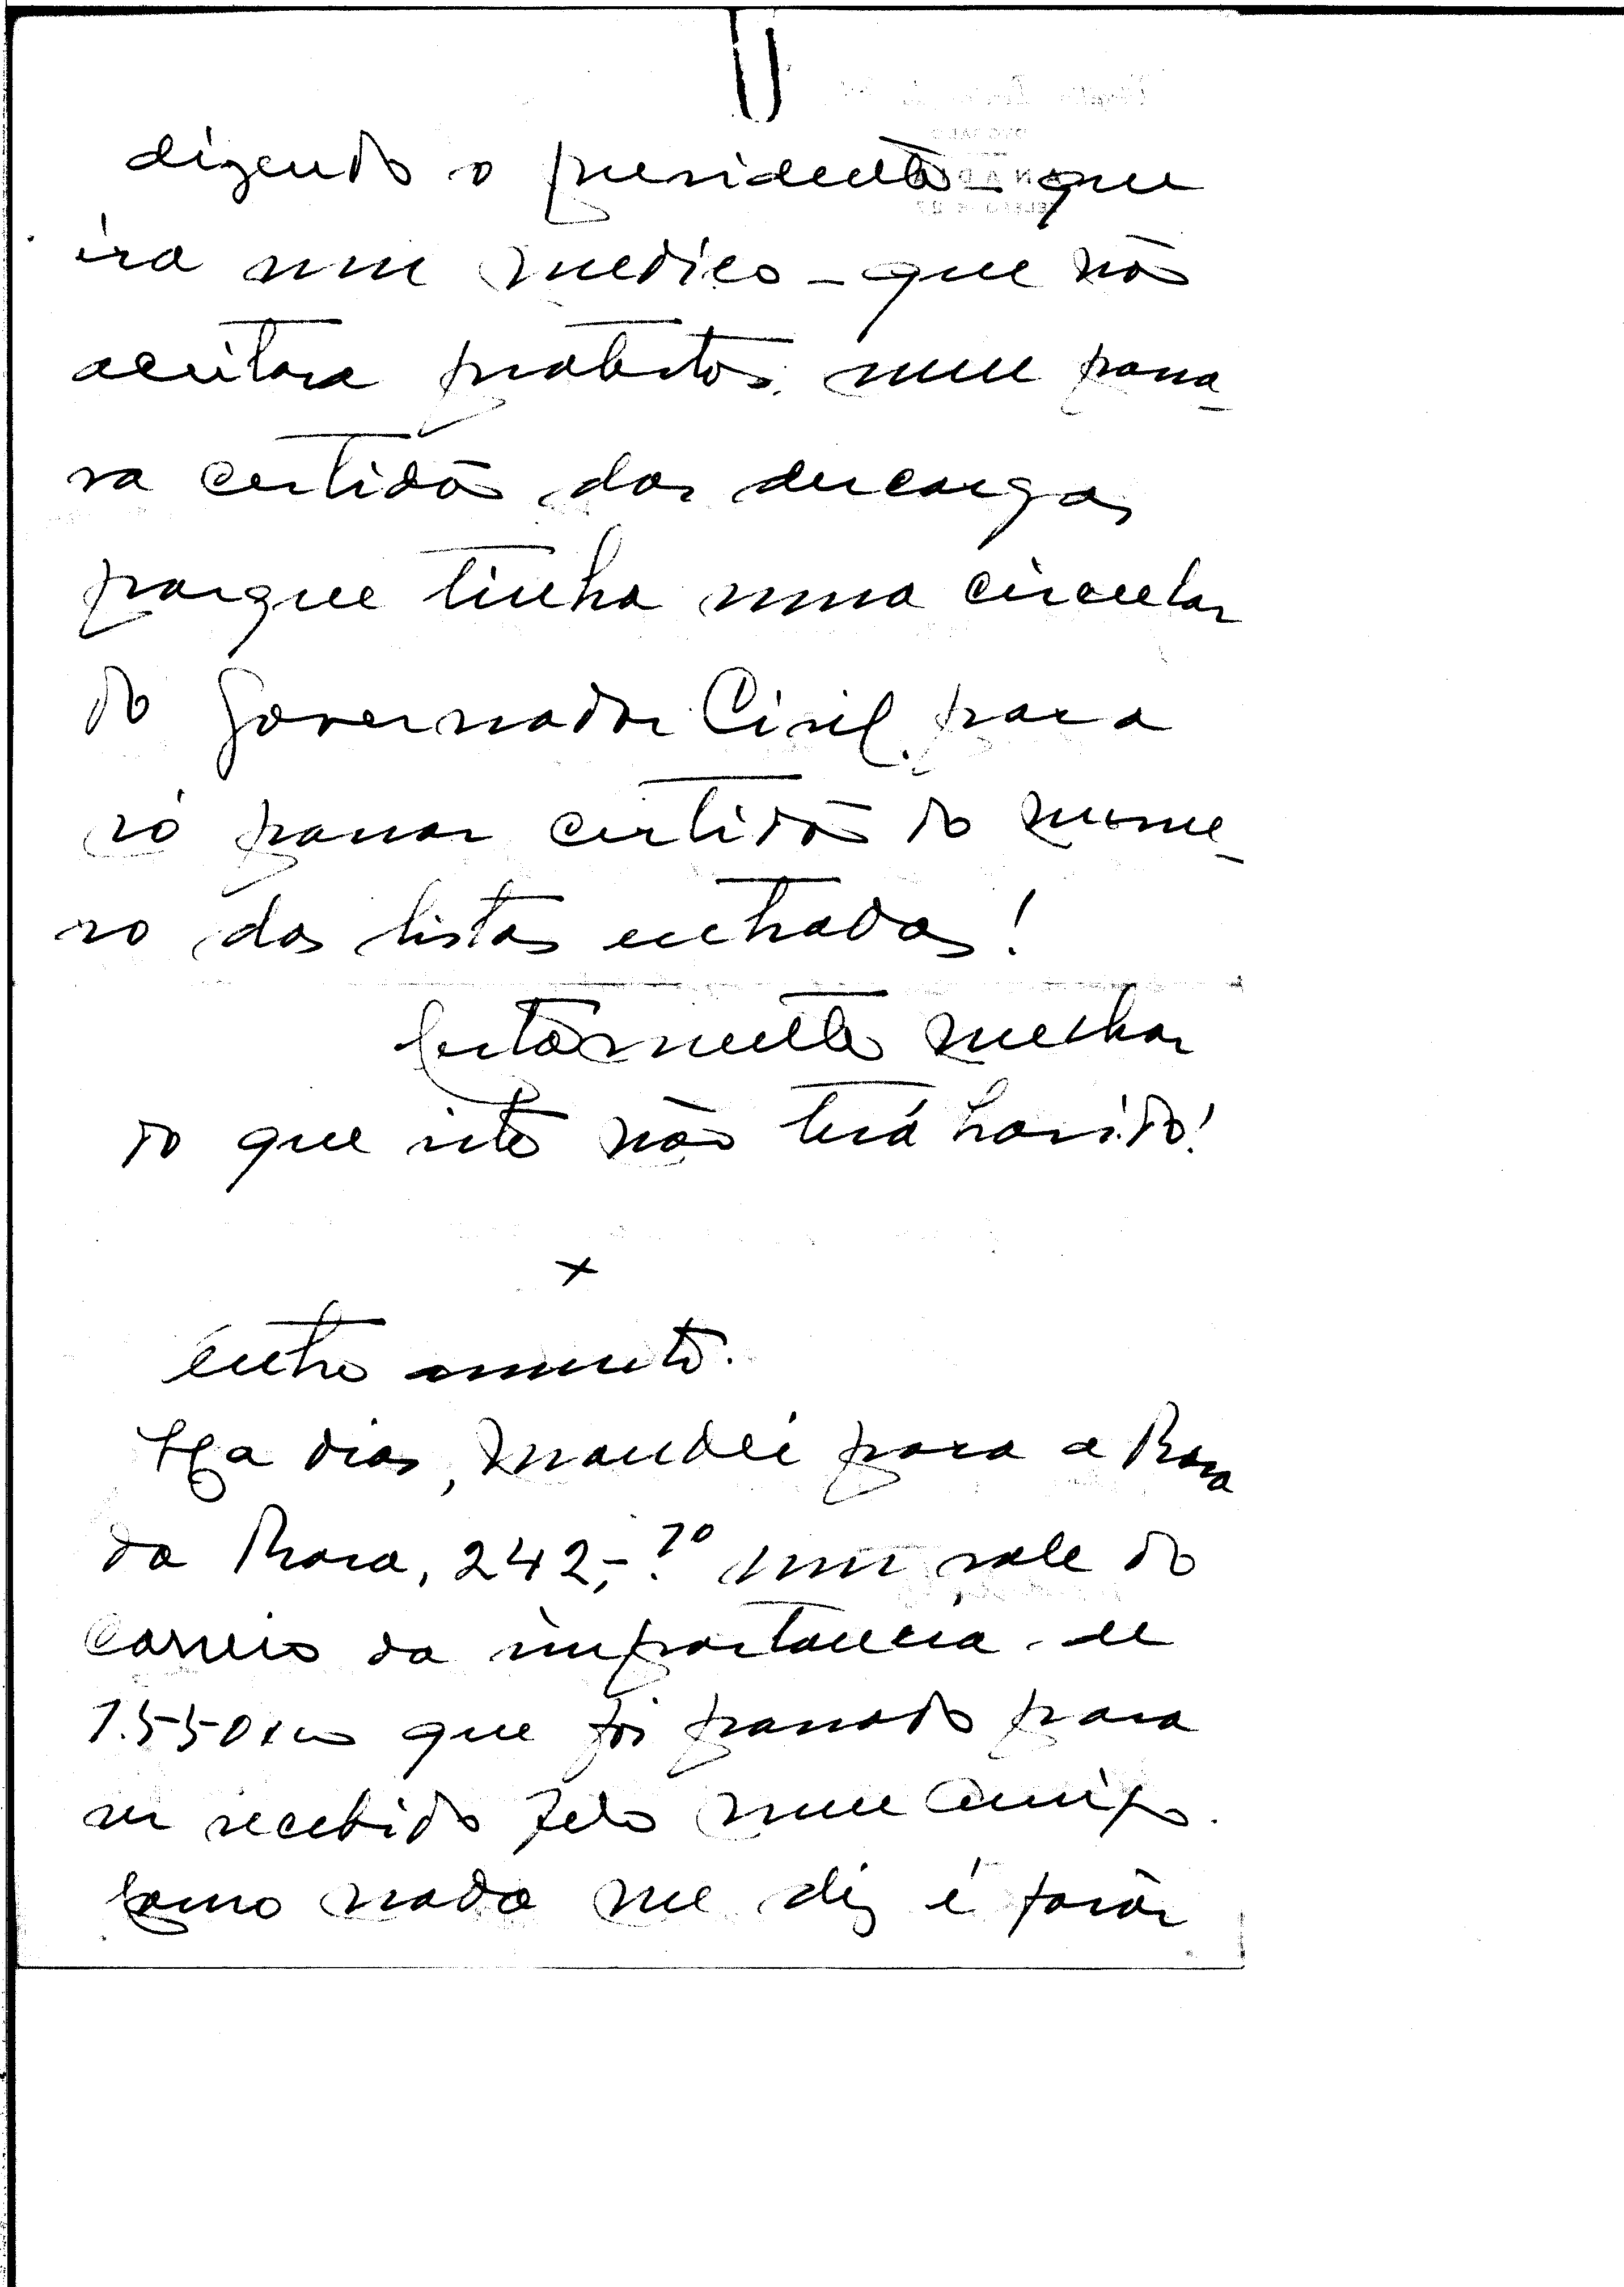 dizendo o presidente - que
era um medico - que não
aceitava protestos nem passa-
va certidão das descargas
porque tinha uma circular
do Governador Civil para
só passar certidão do nume-
ro das listas entradas!
Certamente melhor
do que isto não terá havido!
x
Outro assunto.
Ha dias, mandei para a Rua
da Rosa, 242,-?º um vale do
Correio da importancia de
1.550$00 que foi passado para
ser recebido pelo meu Amigo.
Como nada me diz é favor